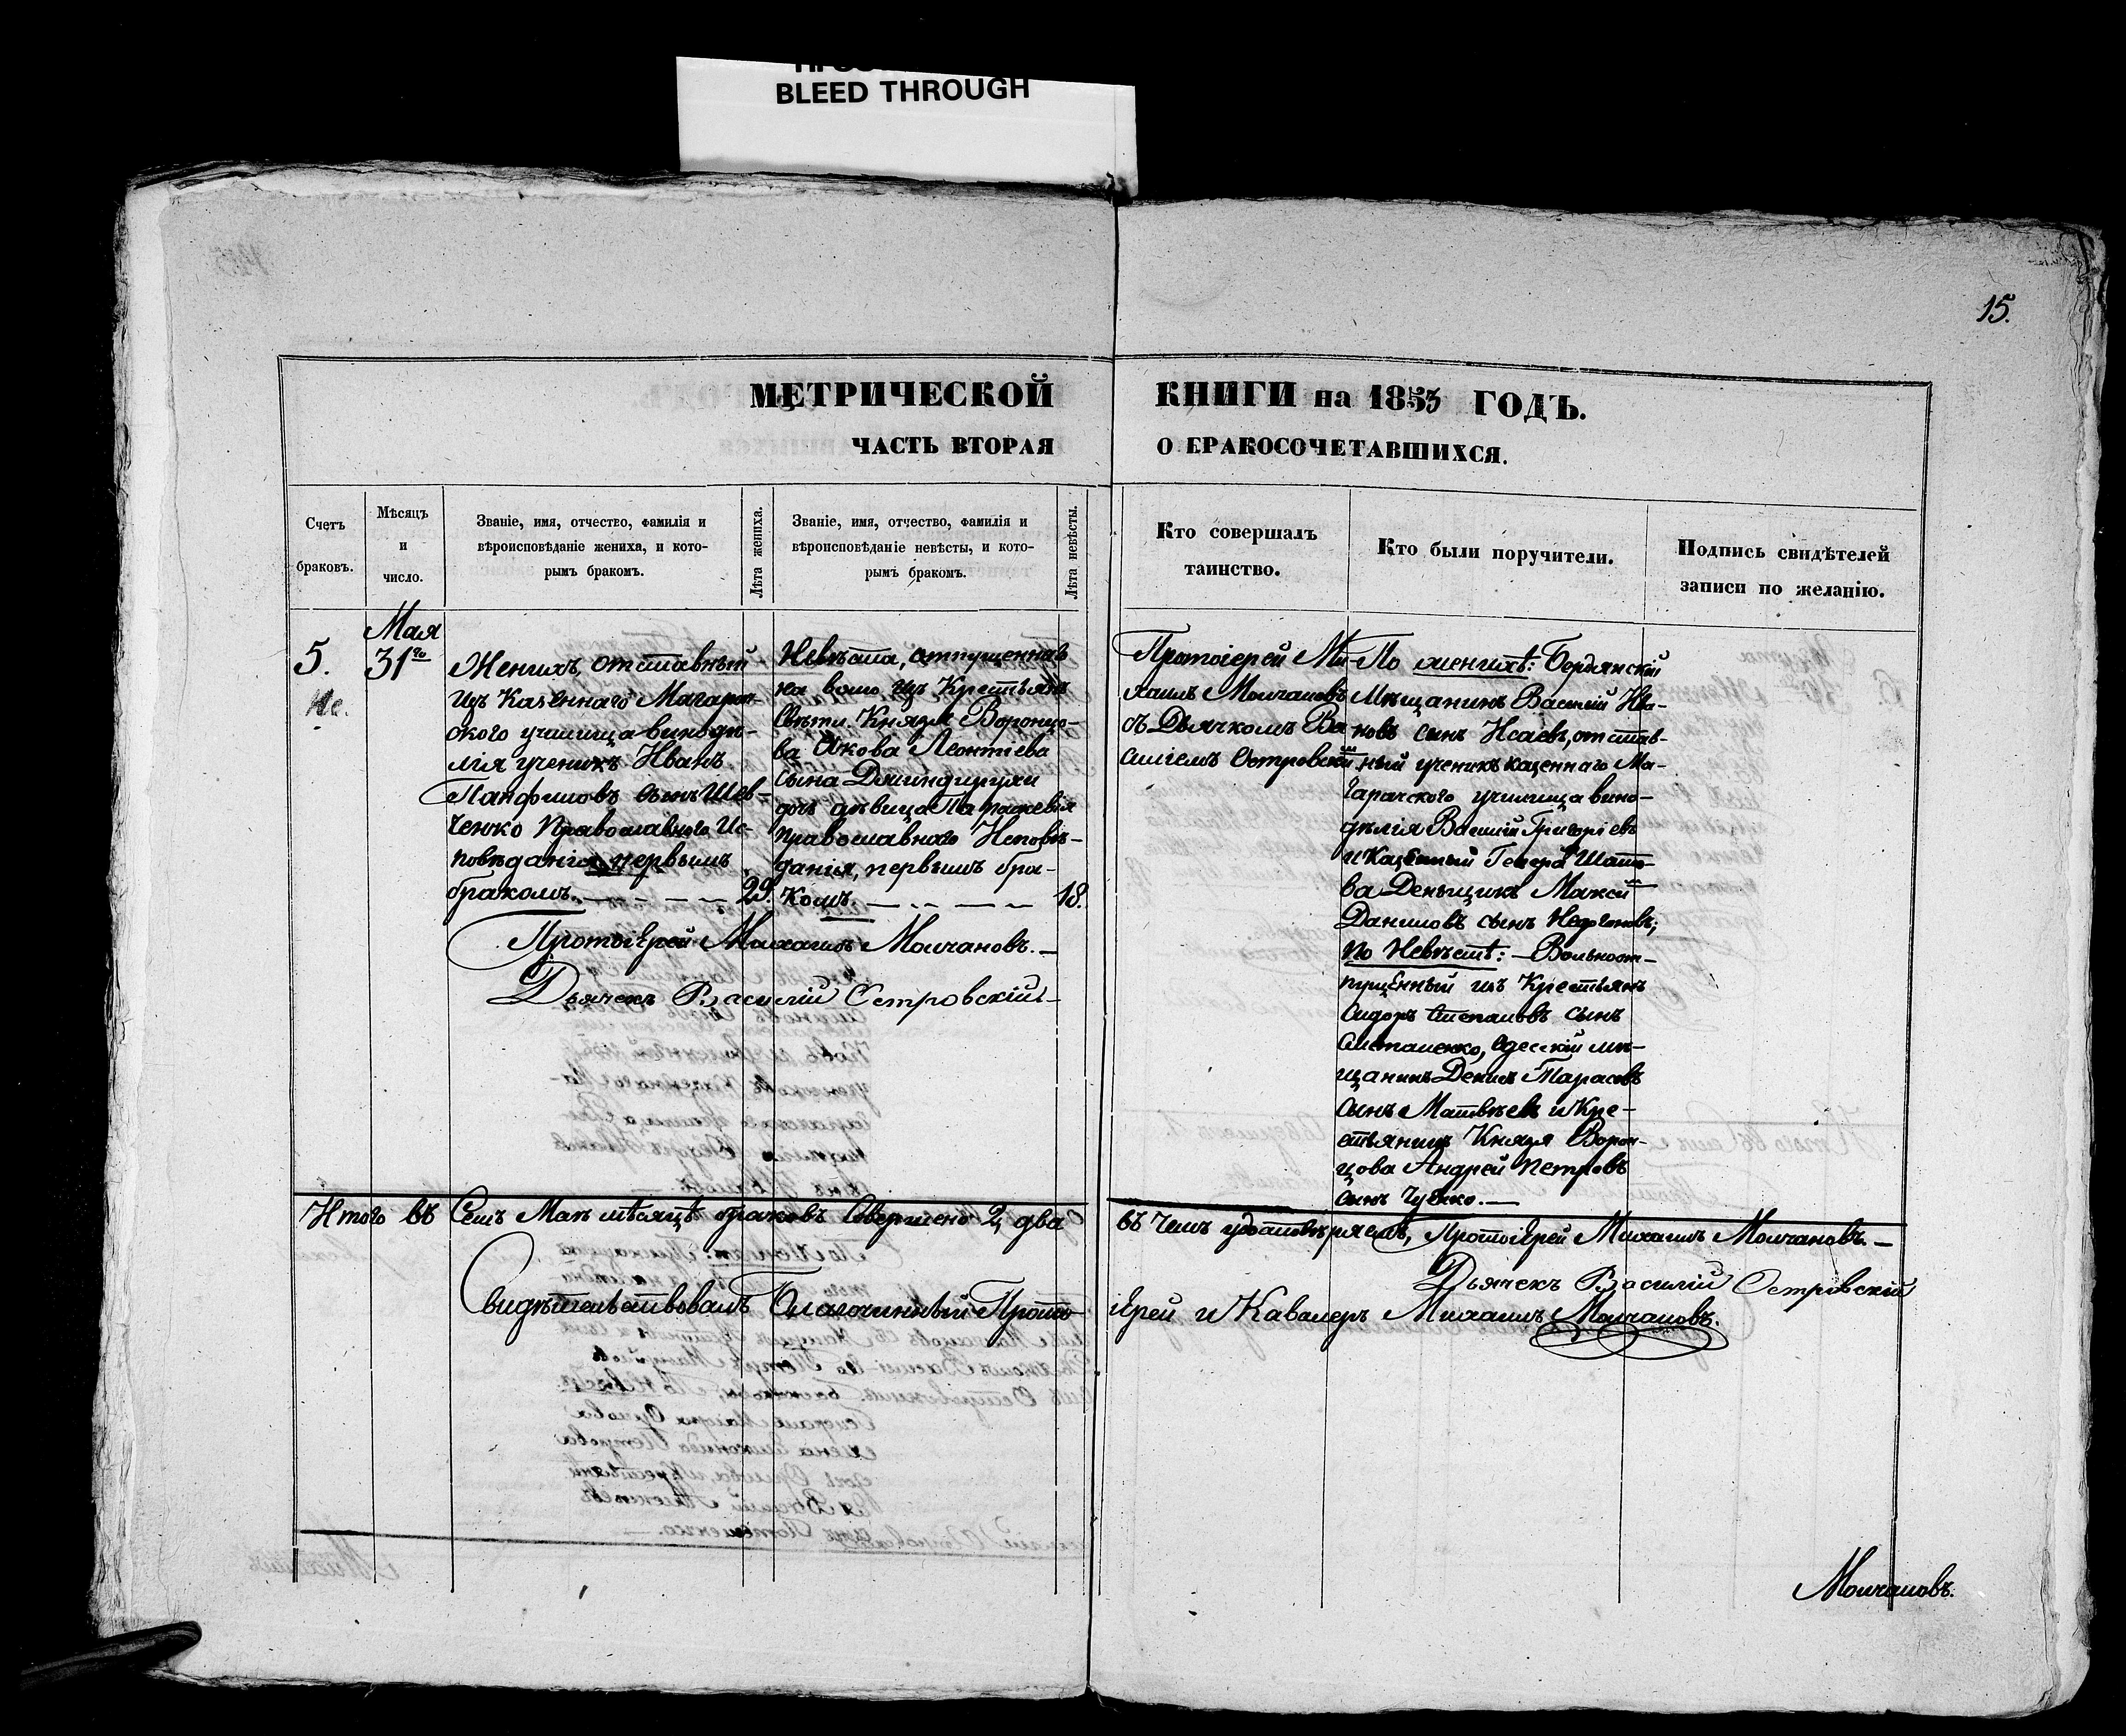 BLEED THROUGH
15.
МЕТРИЧЕСКОЙ КНИГИ на 1853 ГОДЪ.
ЧАСТЬ ВТОРАЯ О БРАКОСОЧЕТАВШИХСЯ.
Счетъ
браковъ.
Мѣсяцъ
и
число.
Званіе, имя, отчество, фамилія и
вѣроисповѣданіе жениха, и кото-
рымъ бракомъ.
Лѣта жениха.
Званіе, имя, отчество, фамилія и
вѣроисповѣданіе невѣсты, и кото-
рымъ бракомъ.
Лѣта невѣсты.
Кто совершалъ
таинство.
Кто были поручители.
Подпись свидѣтелей
записи по желанію.
5.
Мая
31го
Женихъ, отставный
изъ Казеннаго Магарач-
скаго училища винодѣ-
лія ученикъ Иванъ
Панфиловъ сынъ Шев-
ченко Православнаго Ис-
повѣданія, первымъ
бракомъ. 29.
Невѣста, отпущенная
на волю изъ Крестьянъ
Свѣтл. Князя Воронцо-
ва Якова Леонтіева
сына
дочь дѣвица Параскевія
православнаго Исповѣ-
данія, первымъ бра-
комъ. 18.
Протоіерей Михаилъ Молчановъ.
Дьячекъ Василій Островскій
Протоіерей Ми-
хаилъ Молчановъ
съ Дьячкомъ Ва-
силіемъ Островскимъ
По женихѣ: Бердянскій
Мѣщанинъ Василій Ива-
новъ сынъ Исаевъ, отстав-
ный ученикъ казеннаго Ма-
гарачскаго училища вино-
дѣлія Василій Григоріевъ
и Казенный Генера
ва Деньщикъ Максимъ
Даниловъ сынъ
по Невѣстѣ: Вольноот-
пущенный изъ Крестьянъ
Сидоръ Степановъ сынъ
Одесскій мѣ-
щанинъ Денисъ Тарасовъ
сынъ Матвѣевъ и Кре-
стьянинъ Князя Ворон-
цова Андрей Петровъ
сынъ
Итого въ Семъ Маѣ мѣсяцѣ браковъ Совершено 2, два
въ Чемъ удостовѣряемъ, Протоіерей Михаилъ Молчановъ.
Дьячекъ Василій Островскій
Свидѣтельствовалъ Благочинный Прото-
іерей и Кавалеръ Михаилъ Молчановъ.
Молчановъ.